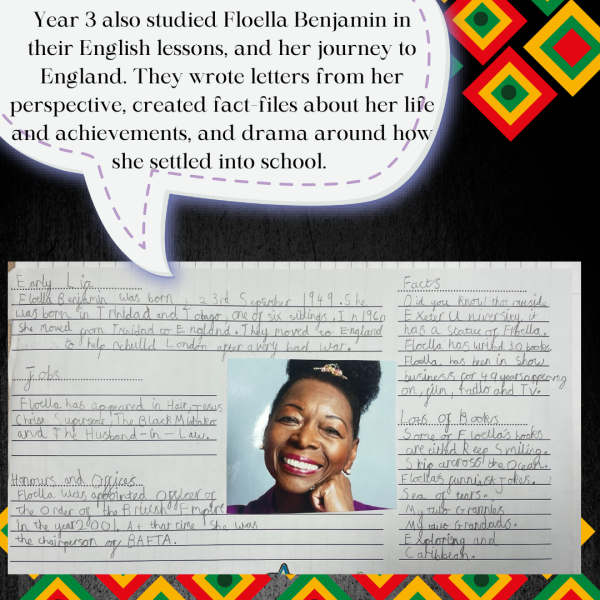 Year 3 also studied Floella Benjamin in
their English lessons, and her journey to
England. They wrote letters from her
perspective, created fact-files about her life
and achievements, and drama around how
she settled into school.
Early
Floella Benjamin was born, 23rd September 1949. She
was born in Trinidad and Tobago, one of six siblings, In 1960
she moved from Trinidad to England. They moved to England
to help rebuild London after a very bad war.
Jobs
Floella has appeared in Hair, Jesus
Christ Superstar, The Black
and The Husband-in-Law.
Honours and Offices
Floella was appointed Officer of
the Order of the British Empire
in the year 2001. At that time she was
the chairperson of BAFTA.
Facts
Did you know that outside
Exeter University, it
has a statue of Floella.
Floella has 30 books
Floella has been in show
business for 49 years appearing
on, film, radio and TV.
Lots of Books
Some of Floella's books
are Keep Smiling.
Skip the Ocean.
Floella's funniest jokes.
Sea of tears.
My two Grannies
My two Grandads.
Exploring and